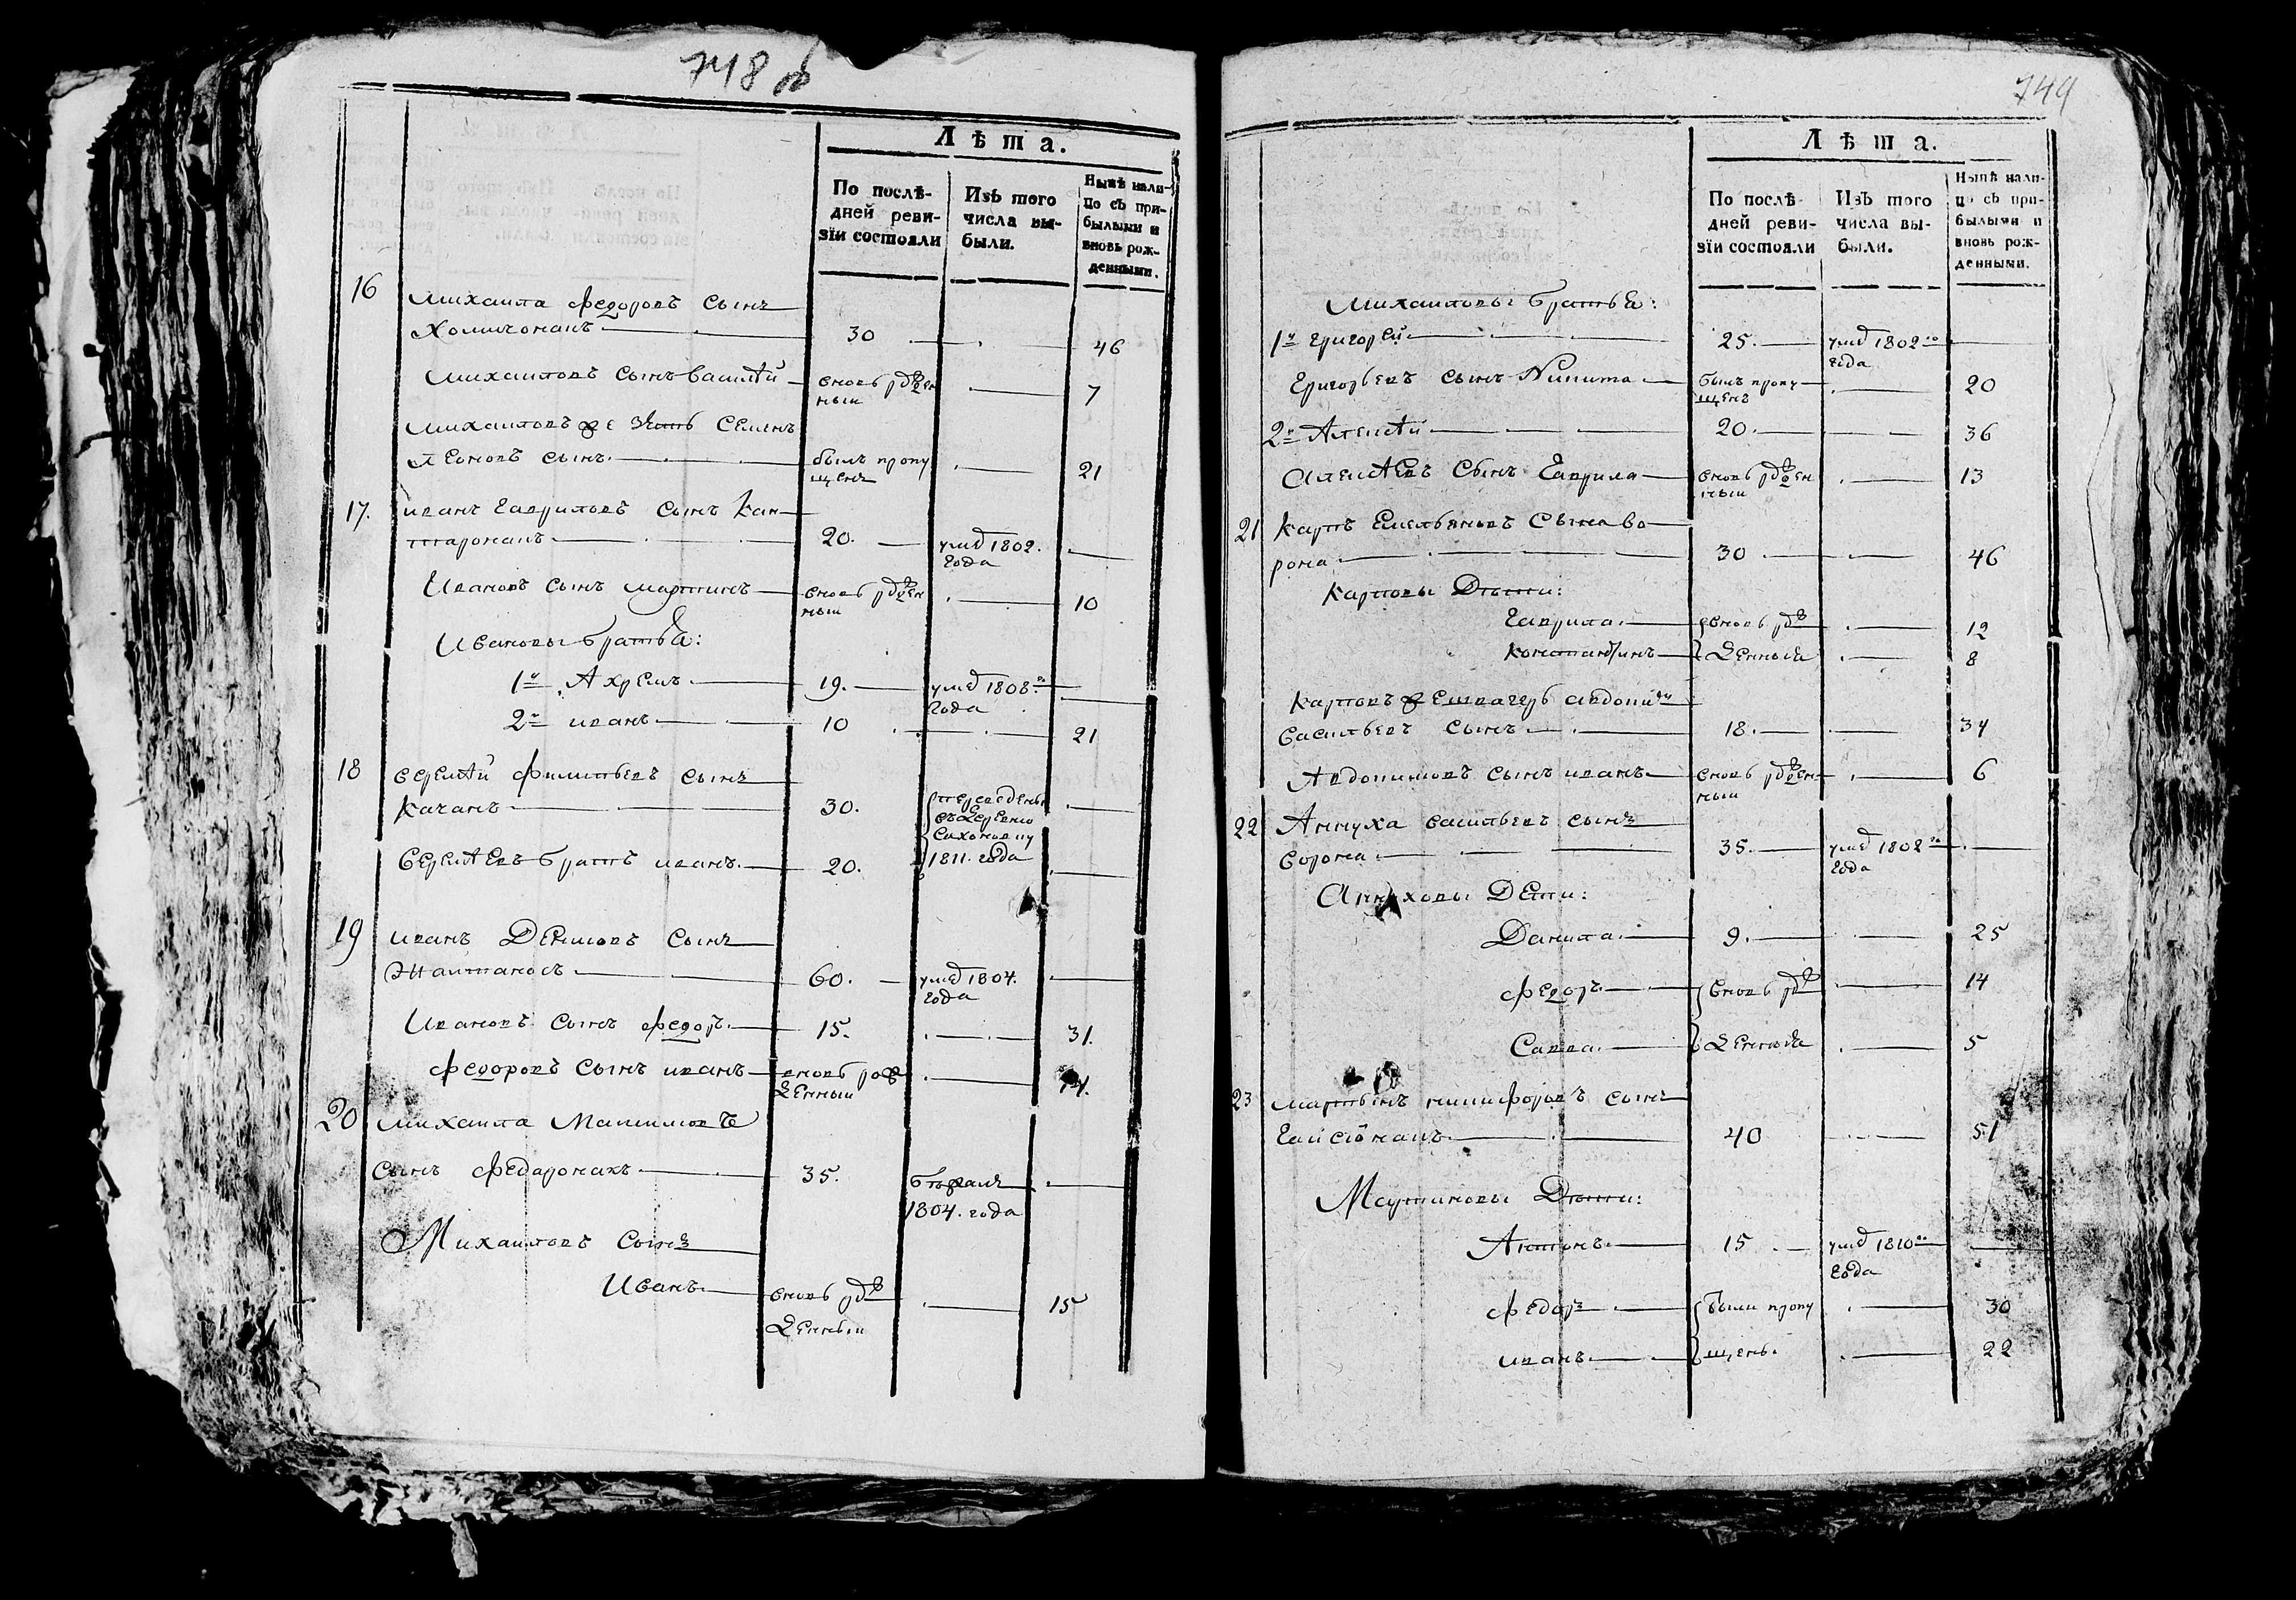 748 об
Лѣта.
По послѣ-
дней реви-
зіи состояли
Изъ того
числа вы-
были.
Нынѣ нали-
цо съ при-
былыми и
вновь рож-
денными.
16
Михаила Федоровъ сынъ
30 46
Михаиловъ сынъ Василѣй вновь рожден 7
ный
Михаиловъ же зять Семенъ
Леоновъ сынъ былъ пропу 21
щенъ
17. Иванъ Гавриловъ сынъ Кан
таронакъ 20. умд 1802.
года
Ивановъ сынъ Мартинъ вновь рожден 10
ный
Ивановы братья:
1й Ахремъ 19. умд 1808го
года
2й Иванъ 10 21
18 Сергѣй Филипьевъ сынъ
Качанъ 30. переведены
въ деревню
1811. года
Сергѣевъ братъ Иванъ. 20.
19 Иванъ Денисовъ сынъ
60. умд 1804.
года
Ивановъ сынъ Федоръ 15. 31.
Федоровъ сынъ Иванъ вновь рож
денный
20 Михаила Максимовъ
сынъ Федаронакъ 35. бѣжалъ
1804. года
Михаиловъ сынъ
Иванъ вновь рож 15
денный
749
Лѣта.
По послѣ-
дней реви-
зіи состояли
Изъ того
числа вы-
были.
Нынѣ нали-
цо съ при-
былыми и
вновь рож-
денными.
Михаиловы братья:
1й Григорей 25. умд 1802го
года
Григорьевъ сынъ Никита былъ пропу 20
щенъ
2й Алексѣй 20. 36
Алексѣевъ сынъ Гаврила вновь рожден 13
ный
21 Карпъ Емельяновъ сынъ Во
рона 30 46
Карповы дѣти:
Гаврила вновь рож 12
Константинъ денныя 8
Карповъ же швагерь Авдоким
Васильевъ сынъ 18. 34
Авдокимовъ сынъ Иванъ вновь рожден 6
ный
22 Аннуха Васильевъ сынъ
Ворона 35. умд 1802го
года
Аннуховы дети:
Данила 9. 25
Федоръ вновь рож 14
Савва денныя 5
23 Мартынъ Никифоровъ сынъ
40 51
Мартиновы дѣти:
Антонъ 15 умд 1810го
года
Федоръ были пропу 30
Иванъ щены. 22